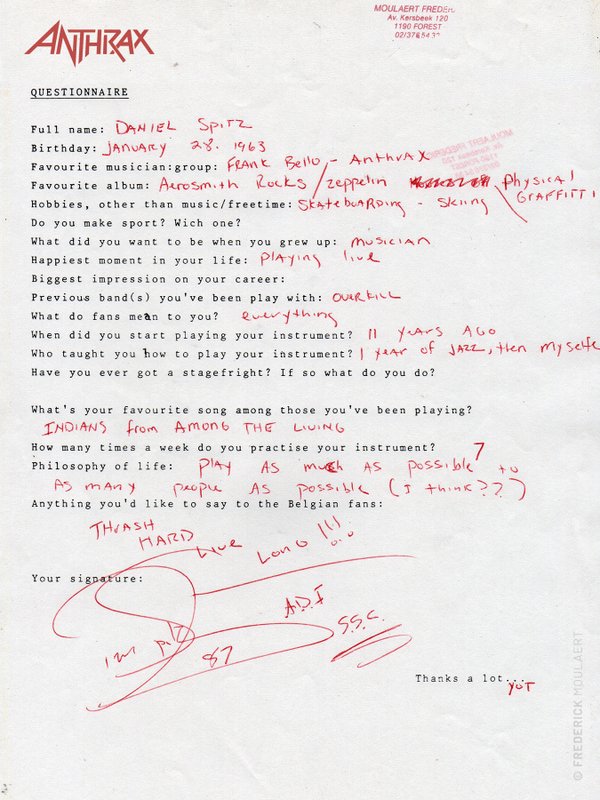 ANTHRAX
MOULAERT FREDER.
Av. Kersbeek 120
1190 FOREST
02/376543
QUESTIONNAIRE
Full name: DANIEL SPITZ
Birthday: JANUARY 28. 1963
Favourite musician:group: FRANK BELLO - ANTHRAX
Favourite album: Aerosmith Rocks / Zeppelin \ PHYSICAl GRAFFITTI
Hobbies, other than music/freetime: SKATEBOARDING - SKIING
Do you make sport? Wich one?
What did you want to be when you grew up: MUSICIAN
Happiest moment in your life: PLAYING live
Biggest impression on your career:
Previous band(s) you've been play with: OVERKILL
What do fans mean to you? everything
When did you start playing your instrument? 11 YEARS AGO
Who taught you how to play your instrument? 1 YEAR OF JAZZ, then MYSELF
Have you ever got a stagefright? If so what do you do?
What's your favourite song among those you've been playing?
INDIANS from AMONG THE LIVING
How many times a week do you practise your instrument? 7
Philosophy of life: PLAY AS much AS possible to
AS MANY people AS possible (I think??)
Anything you'd like to say to the Belgian fans:
THRASH
HARD
LIVE LONG!!!
Your signature:
A.D.I
S.S.C.
87
Thanks a lot...
YOT
© FREDERICK MOULAERT